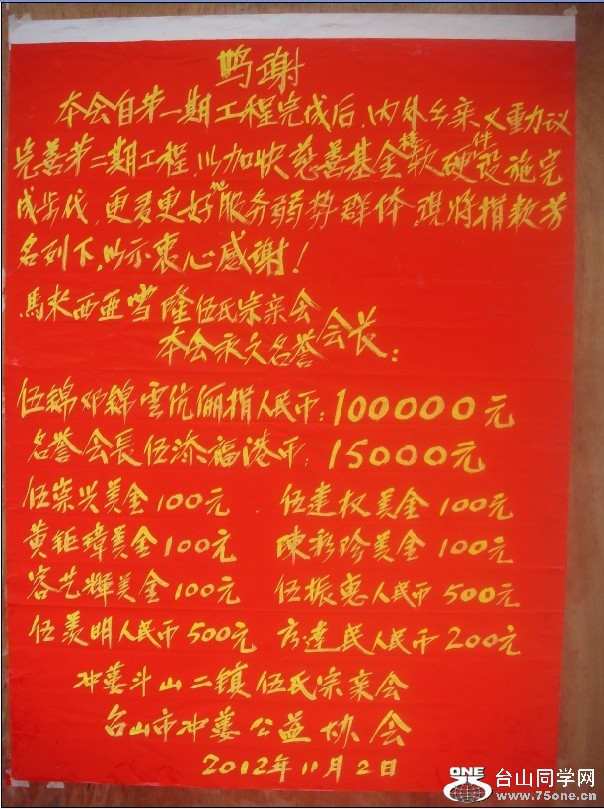 鸣谢
本会自第一期工程完成后，内外乡亲又重力议
完善第二期工程，以加快慈善基金楼软硬件设施完
成步伐，更多更好地服务弱势群体，现将捐款芳
名列下，以示衷心感谢！
馬来西亚雪隆伍氏宗亲会
本会永久名誉会长：
伍錦邓錦雲伉俪捐人民币：100000元
名誉会長伍添福港币：15000元
伍崇兴美金100元 伍建权美金100元
黄鉅璋美金100元 陳彩珍美金100元
容艺輝美金100元 伍振惠人民币500元
伍羡明人民币500元 方達民人民币200元
冲蒌斗山二镇伍氏宗亲会
台山市冲蒌公益协会
2012年11月2日
ONE 台山同学网
www.75one.cn